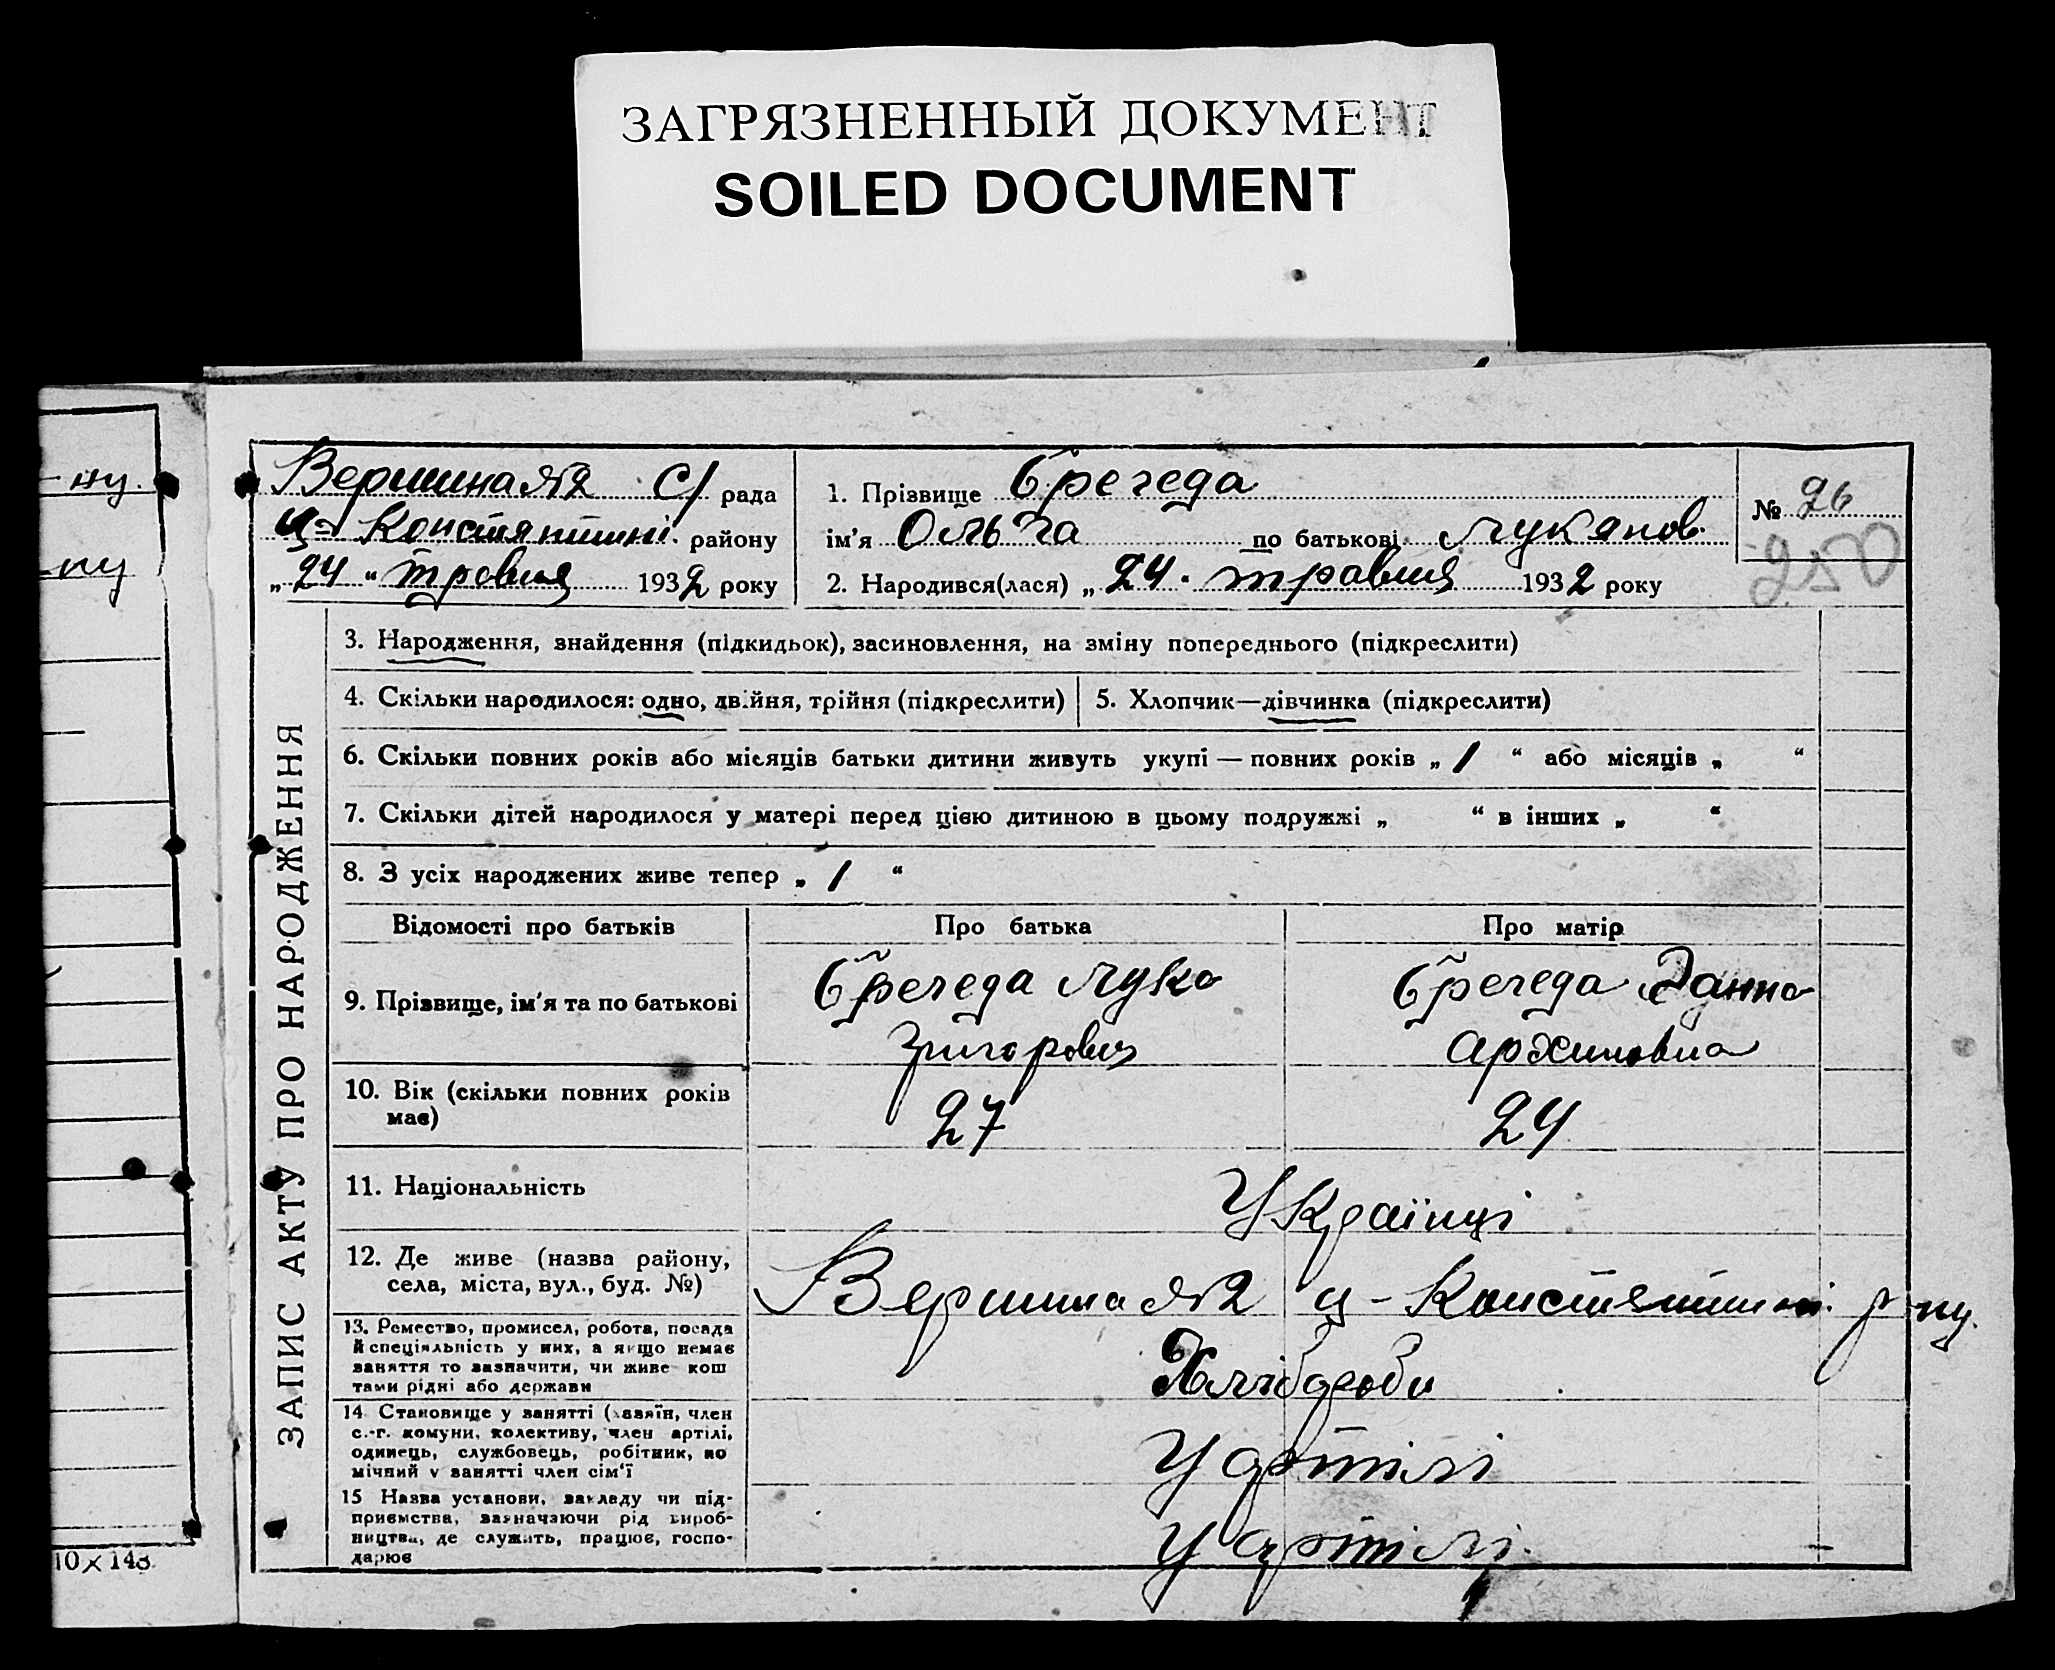 ЗАГРЯЗНЕННЫЙ ДОКУМЕНТ
SOILED DOCUMENT
ну.
ну
10×148
Вершина №2 С/ рада
Ц-Констянтині. району
„24“ травня 1932 року
1. Прізвище Брегеда
ім'я Ольга по батькові Лукянов.
2. Народився(лася) „24“ травня 1932 року
№ 26
250
ЗАПИС АКТУ ПРО НАРОДЖЕННЯ
3. Народження, знайдення (підкидьок), засиновлення, на зміну попереднього (підкреслити)
4. Скільки народилося: одно, двійня, трійня (підкреслити)
5. Хлопчик—дівчинка (підкреслити)
6. Скільки повних років або місяців батьки дитини живуть укупі — повних років „1“ або місяців „ “
7. Скільки дітей народилося у матері перед цією дитиною в цьому подружжі „ “ в інших „ “
8. З усіх народжених живе тепер „1“
Відомості про батьків
Про батька
Про матір
9. Прізвище, ім'я та по батькові
Брегеда Лука
Григорович
Брегеда Ганна
Архиповна
10. Вік (скільки повних років
має)
27
24
11. Національність
Українці
12. Де живе (назва району,
села, міста, вул., буд. №)
Вершина №2 ц-Констянтині. р-ну.
13. Ремество, промисел, робота, посада
й спеціяльність у них, а якщо немає
заняття то зазначити, чи живе кош
тами рідні або держави
Хлібороби
14. Становище у занятті (хазяїн, член
с.-г. комуни, колективу, член артілі,
одинець, службовець, робітник, по
мічний у занятті член сім'ї
У артілі
15 Назва установи, закладу чи під-
приємства, зазначаючи рід вироб-
ництва, де служить, працює, госпо-
дарює
У артілі.